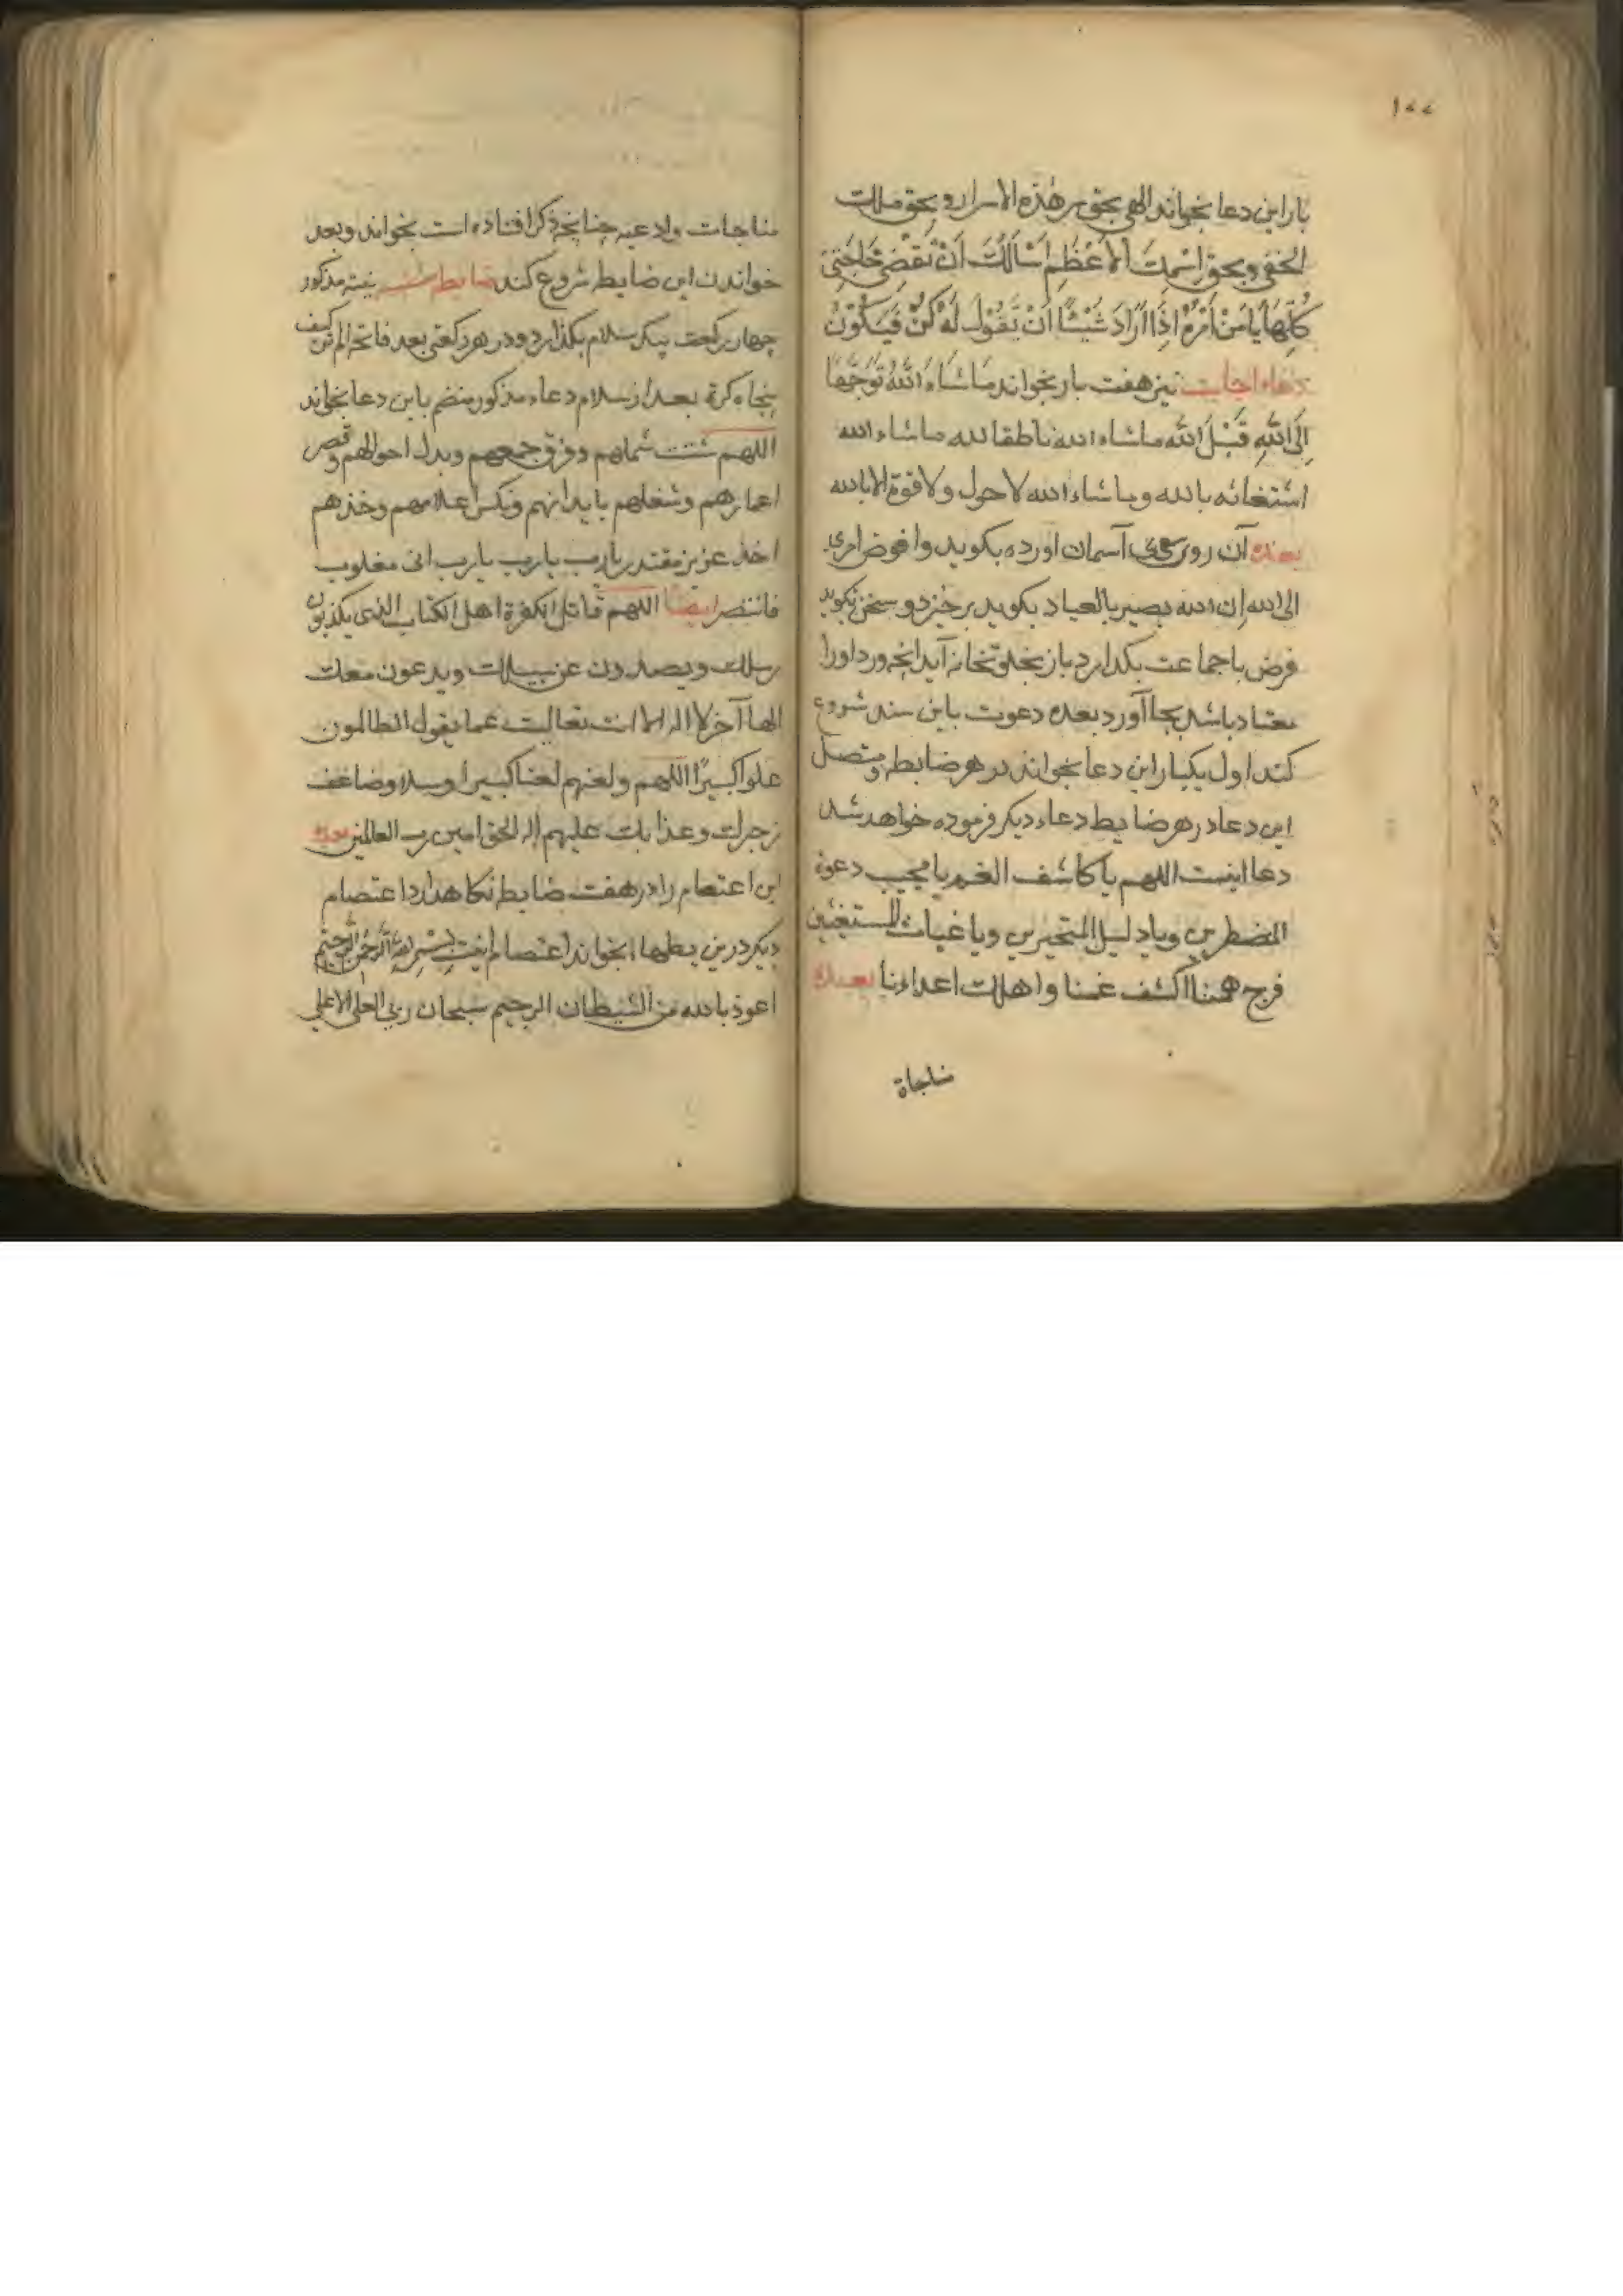 ١٧٧
بار این دعا بخواند الهی بحق سر هذه الاسرار و بحق ملک
الخفی و بحق اِسْمِکَ اَلاَعْظَمِ اَسْاَلُکَ اَنْ تَقْضِیَ حَاجَتِیْ
کُلِّهَا یَا مَنْ اَمْرُهُ اِذَا اَرَادَ شَیْئًا اَنْ یَقُوْلَ لَهُ کُنْ فَیَکُوْنُ
دعاء اجابت نیز هفت بار بخواند مَاشَاءَ اللّٰهُ تَوَجُّهًا
اِلَی اللّٰهِ قَبْلَ اللّٰه ماشاء الله ناطقا لله ماشاء الله
استغاثه بالله و ماشاء الله لا حول و لا قوة الا بالله
بعده آن روی سوی آسمان اورده بکوید وافوض امری
الی الله اِن الله بصیر بالعباد بکوید برخیزد و سخن نکوید
فرض باجماعت بکذارد باز بخلوتخانه آید انچه ورد او را
معتاد باشد بجا آورد بعده دعوت باین سند شروع
کند اول یکبار این دعا بخواند در هر ضابطه و متصل
این دعا در هر ضابط دعاء دیکر فرموده خواهد شد
دعا اینست اللهم یا کاشف الغم یا مجیب دعوة
المضطرین و یا دلیل المتحیرین و یا غیاث المستغیثین
فرج همنا اکشف غمنا و اهلک اعداءنا بعده
مناجاة
مناجات و ادعیه چنانچه ذکر افتاده است بخواند و بعد
خواندن این ضابط شروع کند ضابطه نیة مذکور
چهار رکعت بیک سلام بکذارد و در هر رکعتی بعد فاتحه الم تر کیف
پنجاه کرة بعد از سلام دعاء مذکور منضم باین دعا بخواند
اللهم شتت شملهم و فرق جمعهم و بدل احوالهم و قصر
اعمارهم و شغلهم بابدانهم و نکس اعلامهم و خذهم
اخذ عزیز مقتدر یا رب یا رب یا رب انی مغلوب
فانتصر ایضا اللهم قاتل الکفرة اهل الکتاب الذی یکذبون
رسلک و یصدون عن سبیلک و یدعون معک
الها آخر لا اله الا انت تعالیت عما یقول الظالمون
علوا کبیرًا اللهم و لعنهم لعنا کبیرا و سلا و ضاعف
زجرک و عذابک علیهم اله الحق امین رب العالمین بعده
این اعتصام را در هفت ضابط نکاهدارد اعتصام
دیکر درین بطها بخواند اعتصام اینست بِسْمِ اللّٰهِ الرَّحْمٰنِ الرَّحِیْمِ
اعوذ بالله من الشیطان الرجیم سبحان ربی العلی الاعلی